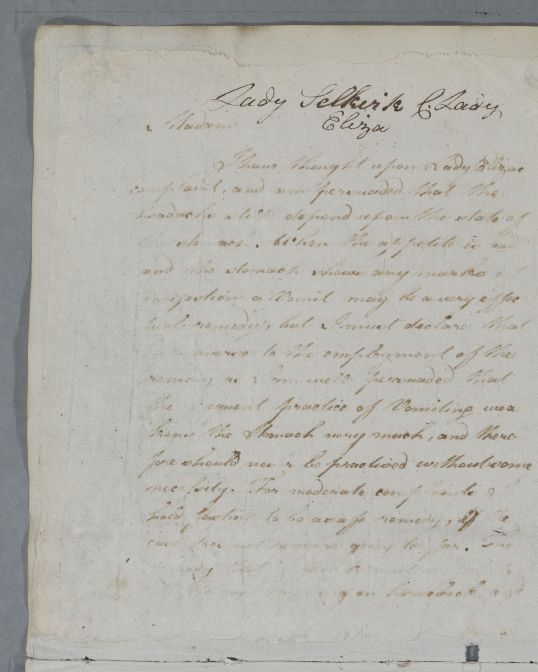 Lady Selkirk C. Lady
Eliza
Madam
I have thought upon Lady Elizas
complaint, and am persuaded that the
headachs still depend upon the state of
the stomach. When the appetite is
and the stomach shows any marks of
indigestion a Vomit may be a very effec
tual remedy, but I must declare that
averse to the employment of the
remedy as I am well persuaded that
the frequent practice of Vomiting wea
kens the Stomach very much, and there
fore should never be practised without some
necessity. For moderate complaints I
hold fasting to be a safe remedy, if the
case does not require going so far. The
remedy
on horseback